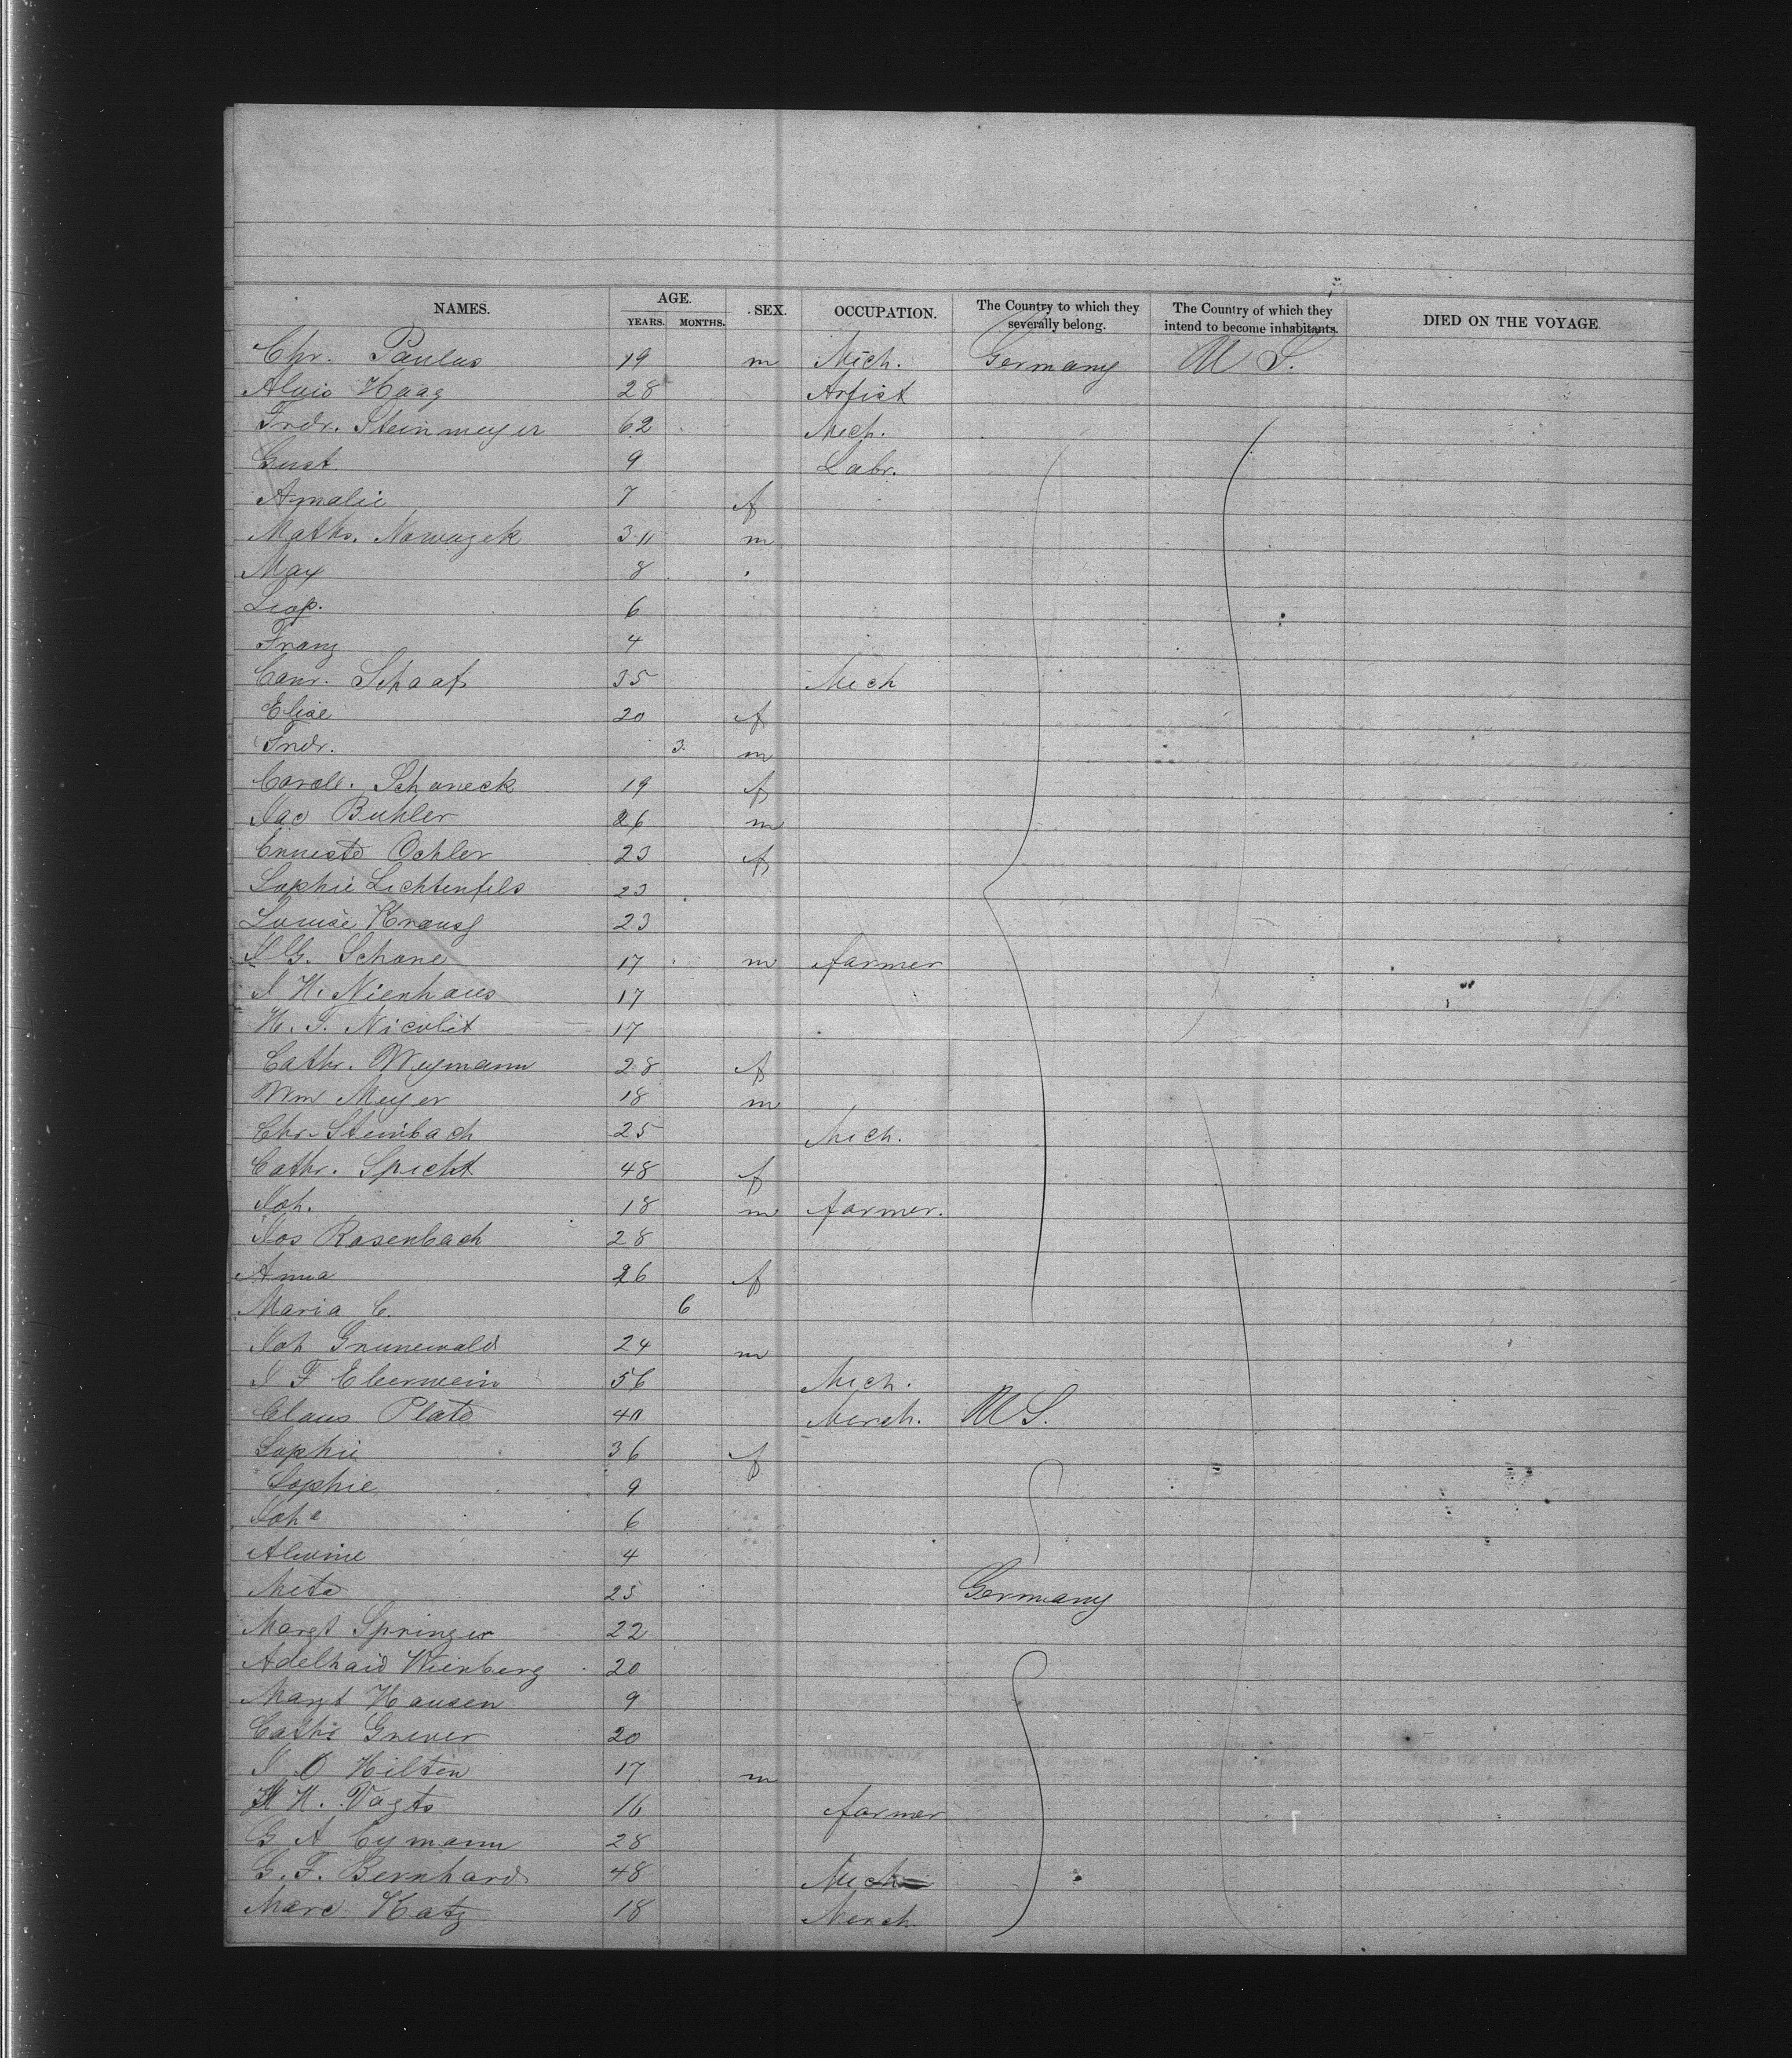 NAMES. AGE. SEX. OCCUPATION. The Country to which they severally belong. The Country of which they intend to become inhabitants. DIED ON THE VOYAGE.
YEARS. MONTHS.
Chr. Paulus 19 m Mich. Germany U S.
Alois Haag 28 Artist
Fredr. Steinmeyer 62 Mech.
Gust. 9 Labr.
Amalie 7 f
Maths. Nowazek 3 11 m
Max 8
Leop. 6
Franz 4
Conr. Schaaf 35 Mech
Elise 20 f
Fredr. 3 m
Carole. Schoneck 19 f
Jac Buhler 26 m
Erneste Oehler 23 f
Sophie Lichtenfels 23
Louise Krauss 23
J G. Schone 17 m farmer
J H. Nienhaus 17
H. J. Nicolit 17
Cathr. Weymann 28 f
Wm Meyer 18 m
Chr. Steinbach 25 Mich.
Cathr. Specht 48 f
Joh. 18 m farmer.
Jos Rosenbach 28
Anna 26 f
Maria C. 6
Joh Grunewald 24 m
J F Eberwein 56 Mich.
Claus Plate 40 Merch. U S.
Sophie 36 f
Sophie 9
Joh a 6
Alwine 4
Meta 25 Germany
Margt Springer 22
Adelhaid Weinberg 20
Margt Hansen 9
Cathr Grever 20
J O Hilten 17 m
H H. Vagts 16 farmer
G A Eymann 28
G. F. Bernhard 48 Mich
Marc Katz 18 Merch